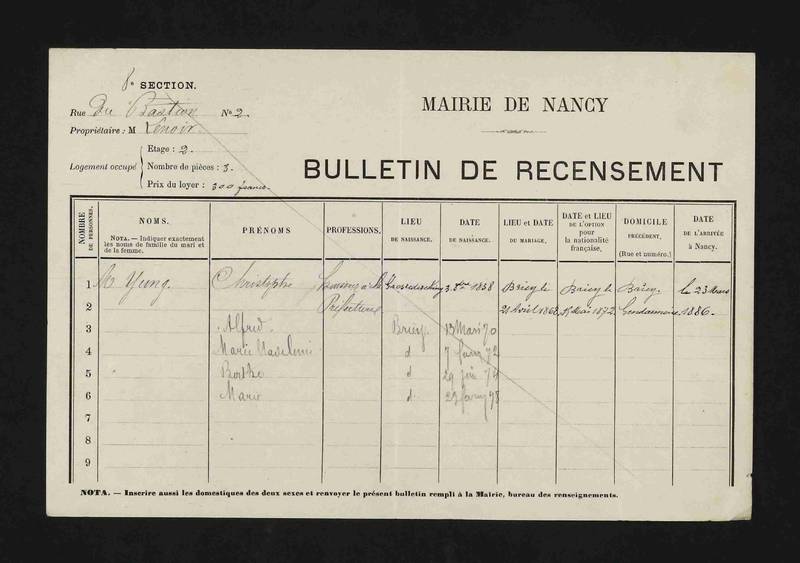 8e SECTION.
Rue Du Bastion No 2.
Propriétaire : M Lenoir.
Etage : 2.
Logement occupé
Nombre de pièces : 3.
Prix du loyer : 300 francs.
MAIRIE DE NANCY
BULLETIN DE RECENSEMENT
NOMBRE DE PERSONNES.
NOMS.
NOTA. — Indiquer exactement les noms de famille du mari et de la femme.
PRÉNOMS
PROFESSIONS.
LIEU DE NAISSANCE.
DATE DE NAISSANCE.
LIEU et DATE DU MARIAGE.
DATE et LIEU DE L'OPTION pour la nationalité française.
DOMICILE PRÉCÉDENT. (Rue et numéro.)
DATE DE L'ARRIVÉE à Nancy.
1 M Yung. Christophe 1838 Briey le Briey le Briey. le 23 Mars
2 Préfecture 21 Avril 1868. Mai 1872. Gendarmerie 1886.
3 Alfred. Briey. 13 Mars 70
4 Marie d 7 72
5 Berthe d 29 74
6 Marie d 78
7
8
9
NOTA. — Inscrire aussi les domestiques des deux sexes et renvoyer le présent bulletin rempli à la Mairie, bureau des renseignements.